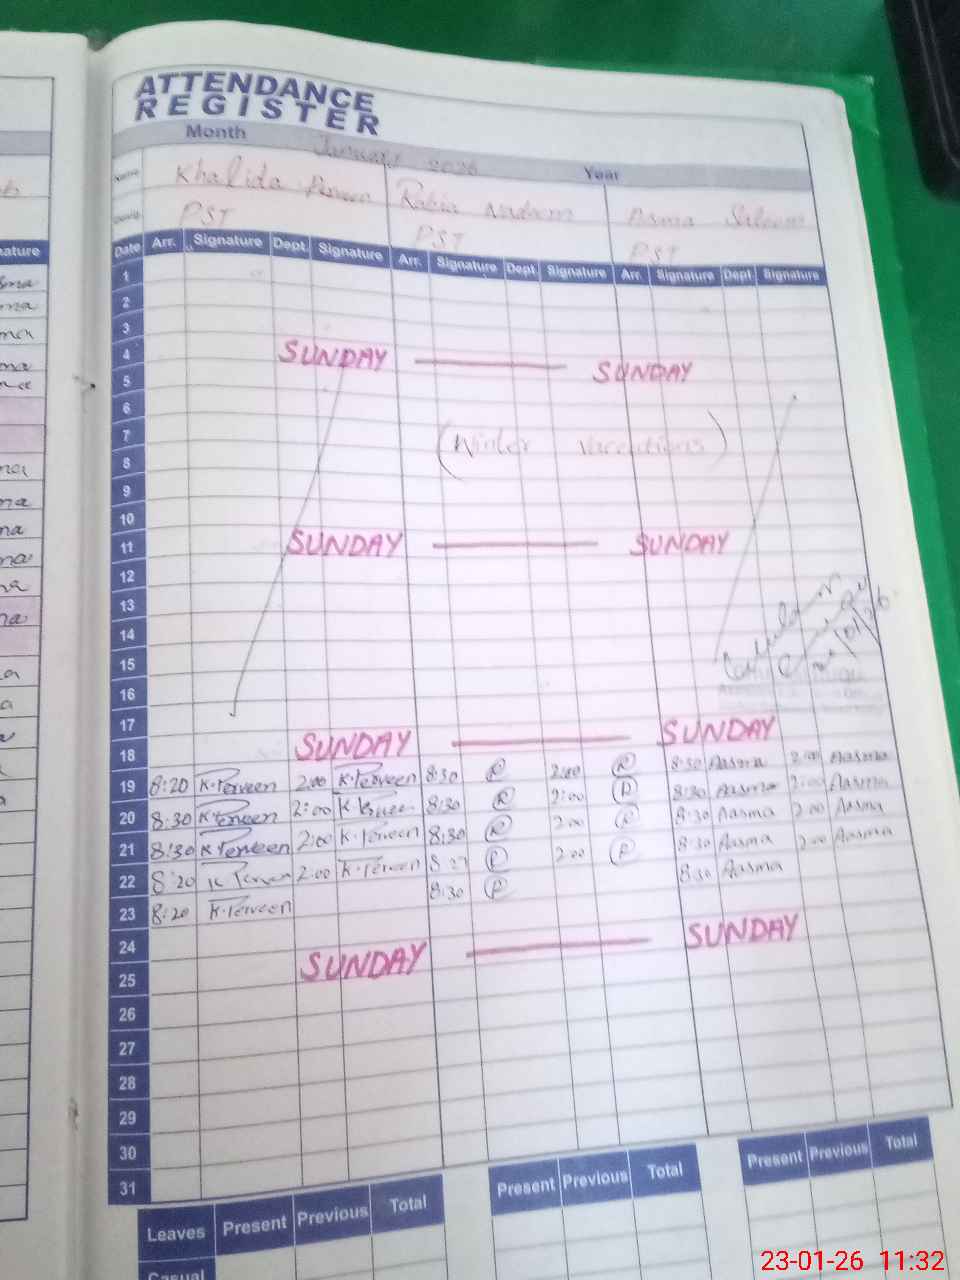 ATTENDANCE
REGISTER
Month January 2026 Year
Name Khalida Rabia Nadeem
Desig. PST PST PST
Date Arr. Signature Dept. Signature Arr. Signature Dept Signature Arr. Signature Dept Signature
1
2
3
4 SUNDAY SUNDAY
5
6
7 (Winter Vacations)
8
9
10
11 SUNDAY SUNDAY
12
13
14
15
16
17
18 SUNDAY SUNDAY
19 8:20 K.Perveen 2:00 K.Perveen 8:30 R 2:00 R 8:30 Aasma 2:00 Aasma
20 8:30 K.Perveen 2:00 8:30 R 2:00 R 8:30 Aasma 2:00 Aasma
21 8:30 K.Perveen 2:00 K.Perveen 8:30 R 2:00 R 8:30 Aasma 2:00 Aasma
22 8:20 2:00 K.Perveen R 2:00 R 8:30 Aasma 2:00 Aasma
23 8:20 K.Perveen 8:30 R 8:30 Aasma
24
25 SUNDAY SUNDAY
26
27
28
29
30
31
Leaves Present Previous Total Present Previous Total Present Previous Total
Casual
23-01-26 11:32